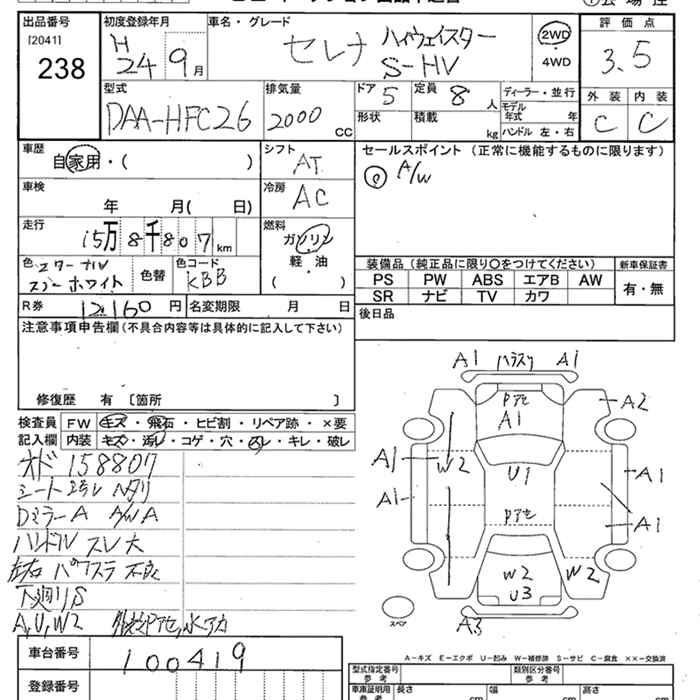 出品番号
[2041]
238
初度登録年月
H
24 9月
車名・グレード
セレナ ハイウェイスター
S-HV
2WD
・
4WD
評価点
3.5
外装 内装
C C
型式
DAA-HFC26
排気量
2000 CC
ドア 5
形状
定員 8 人
積載 kg
ディーラー・並行
モデル
年式 年
ハンドル 左・右
車歴
自家用・( )
シフト
AT
セールスポイント (正常に機能するものに限ります)
A/W
車検
年 月( 日)
冷房
AC
走行
15万8千807 km
燃料
ガソリン
軽・油
( )
色
スノーホワイト
色替
色コード
KBB
装備品 (純正品に限り○をつけてください)
新車保証書
PS PW ABS エアB AW
SR ナビ TV カワ
有・無
R券 12,160円
名変期限 月 日
後日品
注意事項申告欄 (不具合内容等は具体的に記入して下さい)
修復歴 有 〔箇所 〕
検査員
記入欄
FW キズ・飛石・ヒビ割・リペア跡・×要
内装 キズ・汚レ・コゲ・穴・スレ・キレ・破レ
オド 158807
シート ヨゴレ ヘタリ
Dミラー A A/W A
ハンドル スレ大
左右 パワスラ 不良
下廻りS
A,U,W2 外装Pアセ,水アカ
A1 ハラスリ A1
Pアセ
A1
A2
A1
W2
U1
A1
A1
A1
Pアセ
W2
U3
W2
A3
スペア
A－キズ E－エクボ U－凹み W－補修跡 S－サビ C－腐食 ××－交換済
車台番号
100419
登録番号
型式指定番号
参考
類別区分番号
参考
車庫証明用
参考
長さ cm
幅 cm
高さ cm